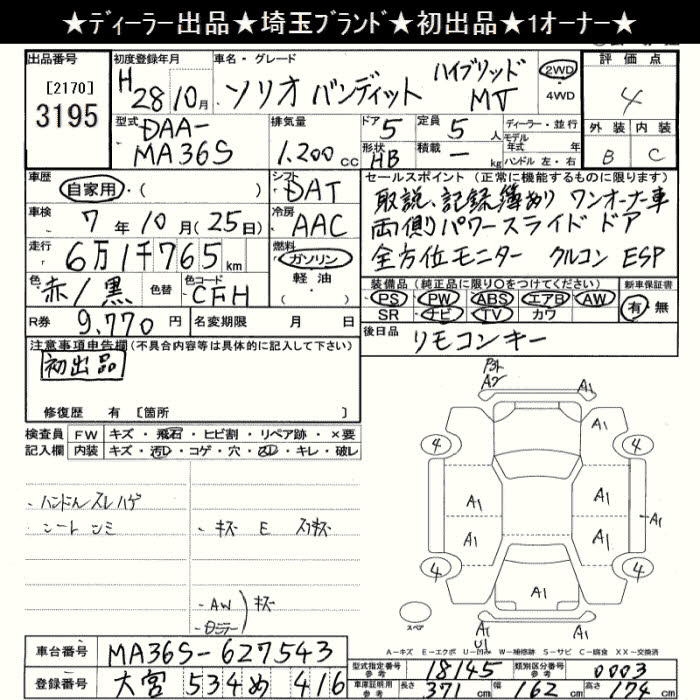 ★ディーラー出品★埼玉ブランド★初出品★1オーナー★
出品番号 初度登録年月 車名・グレード 評価点
[2170] 3195
H 28年 10月 ソリオ バンディット ハイブリッド MV 2WD ・4WD 4
型式 排気量 ドア 定員 ディーラー・並行 外装 内装
DAA-MA36S 1.200 cc 5 5人 モデル年式 年式 B C
形状 HB 積載 - kg ハンドル 左・右
車歴 自家用・( ) シフト DAT
セールスポイント(正常に機能するものに限ります)
取説、記録簿あり ワンオーナー車
車検 7年 10月(25日) 冷房 AAC
両側パワースライドドア
走行 6万1千765km 燃料 ガソリン 軽油 ( )
全方位モニター クルコン ESP
色 赤/黒 色替 色コード CFH
装備品(純正品に限り○をつけてください) 新車保証書
PS・PW・ABS・エアB・AW 有 無
SR ナビ・TV カワ
R券 9,770円 名変期限 月 日
後日品 リモコンキー
注意事項申告欄(不具合内容等は具体的に記入して下さい)
初出品
修復歴 有 [箇所 ]
検査員 FW キズ・飛石・ヒビ割・リペア跡・×要
記入欄 内装 キズ・汚レ・コゲ・穴・スレ・キレ・破レ
・ハンドルスレハゲ
・シートシミ
・キズ E スリキズ
・AW キズ
A2 A1
4 A1 4
A1 A1 A1
A1 A1
4 4
A1
スペア
A1 U1 A1
A-キズ E-エクボ U-凹み W-補修跡 S-サビ C-腐食 XX-交換済
車台番号 MA36S-627543
型式指定番号 参考 18145 類別区分番号 参考 0003
登録番号 大宮 534め 416
車庫証明用 参考 長さ 371cm 幅 162cm 高さ 174cm